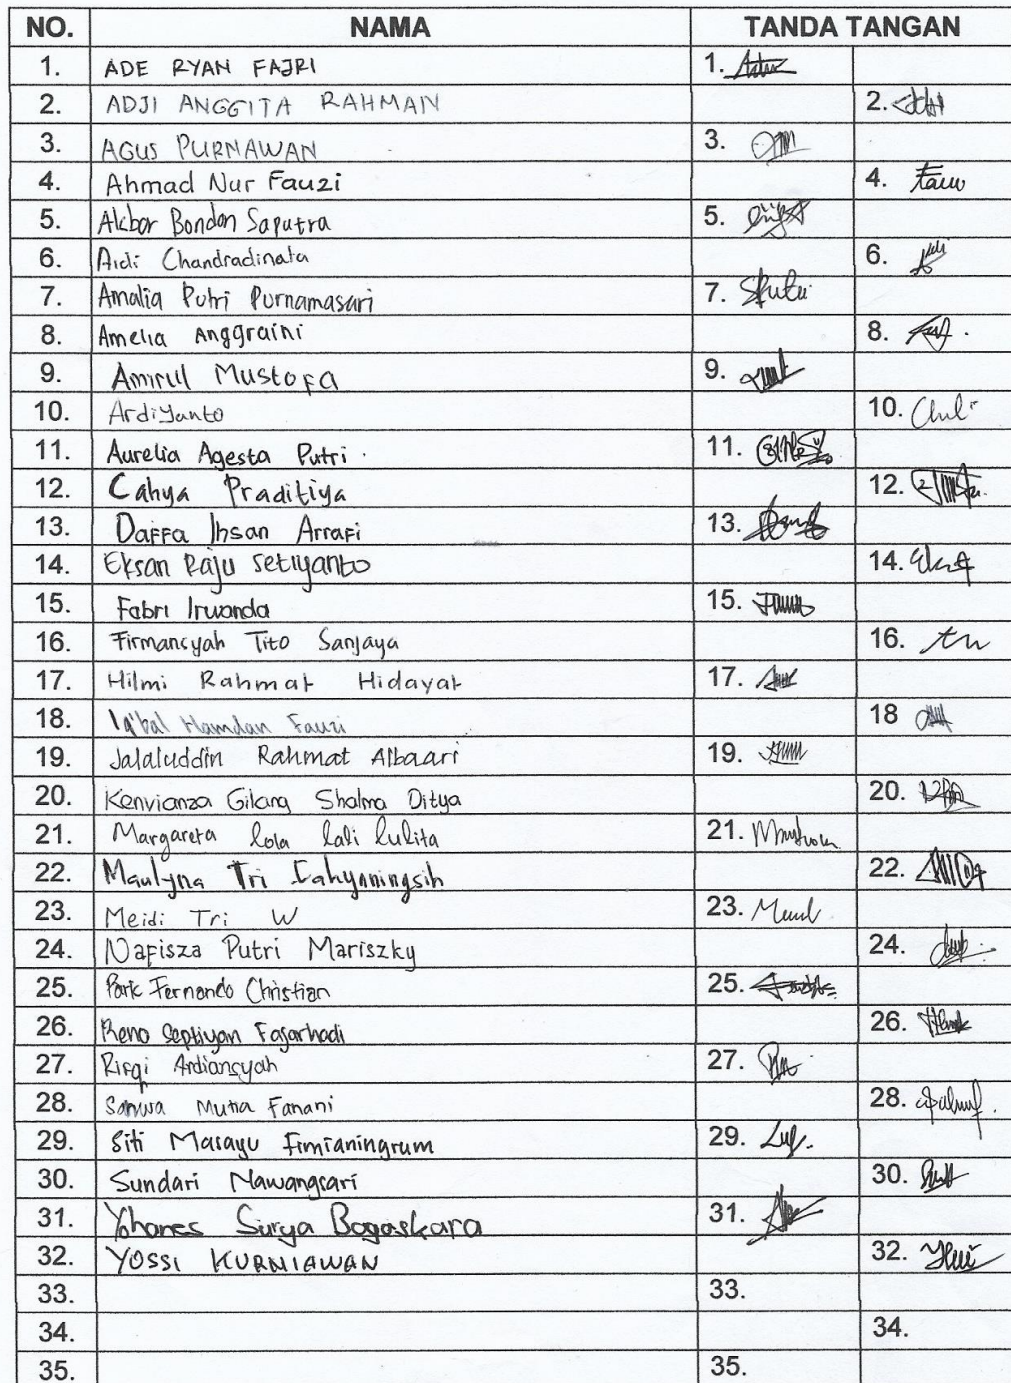 NO. NAMA TANDA TANGAN
1. ADE RYAN FAJRI 1.
2. ADJI ANGGITA RAHMAN 2.
3. AGUS PURNAWAN 3.
4. Ahmad Nur Fauzi 4.
5. Akbar Bondan Saputra 5.
6. Aldi Chandradinata 6.
7. Amalia Putri Purnamasari 7.
8. Amelia Anggraini 8.
9. Amirul Mustofa 9.
10. Ardiyanto 10.
11. Aurelia Agesta Putri. 11.
12. Cahya Praditiya 12.
13. Daffa Ihsan Arrafi 13.
14. Eksan Raju Setiyanto 14.
15. Fabri Irwanda 15.
16. Firmansyah Tito Sanjaya 16.
17. Hilmi Rahmat Hidayat 17.
18. Iqbal Hamdan Fauzi 18
19. Jalaluddin Rahmat Albaari 19.
20. Kenvianza Gilang Shalma Ditya 20.
21. Margareta Lola Lali Lulita 21.
22. Maulyna Tri Cahyaningsih 22.
23. Meidi Tri W 23.
24. Nafisza Putri Mariszky 24.
25. Park Fernando Christian 25.
26. Reno Septiyan Fajarhadi 26.
27. Rifqi Ardiansyah 27.
28. Sanwa Mutia Fanani 28.
29. Siti Masayu Fimianingrum 29.
30. Sundari Nawangsari 30.
31. Yohanes Surya Bagaskara 31.
32. YOSSI KURNIAWAN 32.
33. 33.
34. 34.
35. 35.